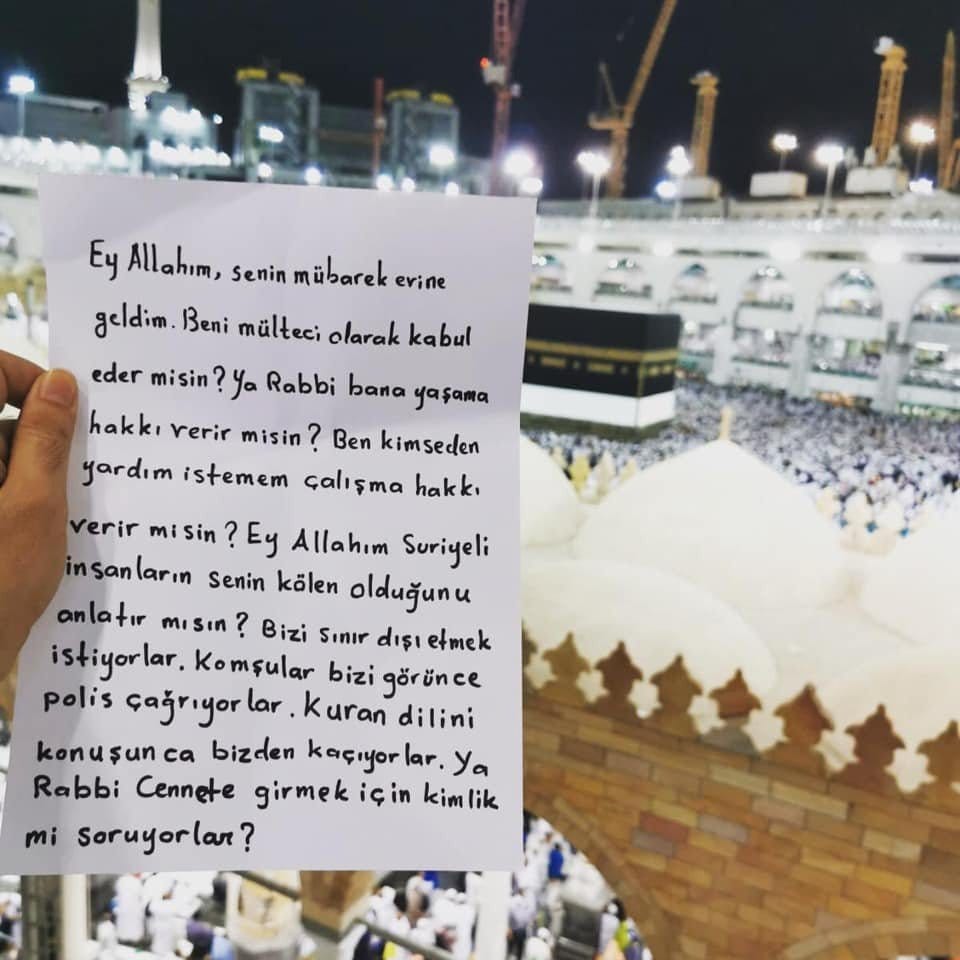 Ey Allahım, senin mübarek evine
geldim. Beni mülteci olarak kabul
eder misin? Ya Rabbi bana yaşama
hakkı verir misin? Ben kimseden
yardım istemem çalışma hakkı
verir misin? Ey Allahım Suriyeli
insanların senin kölen olduğunu
anlatır mısın? Bizi sınır dışı etmek
istiyorlar. Komşular bizi görünce
polis çağrıyorlar. Kuran dilini
konuşunca bizden kaçıyorlar. Ya
Rabbi Cennete girmek için kimlik
mi soruyorlar?